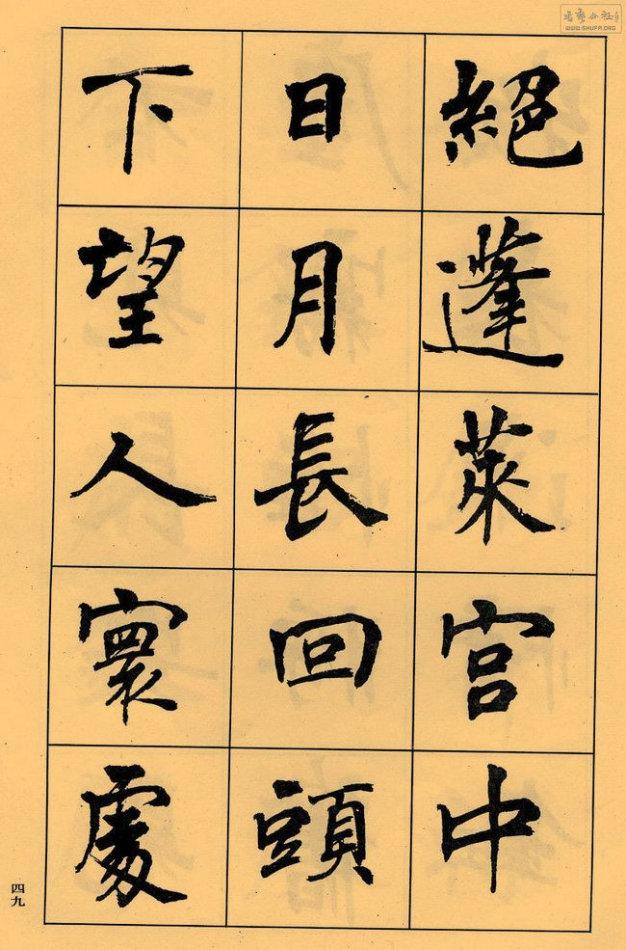 絕蓬萊宮中
日月長回頭
下望人寰處
四九
WWW.SHUFA.ORG